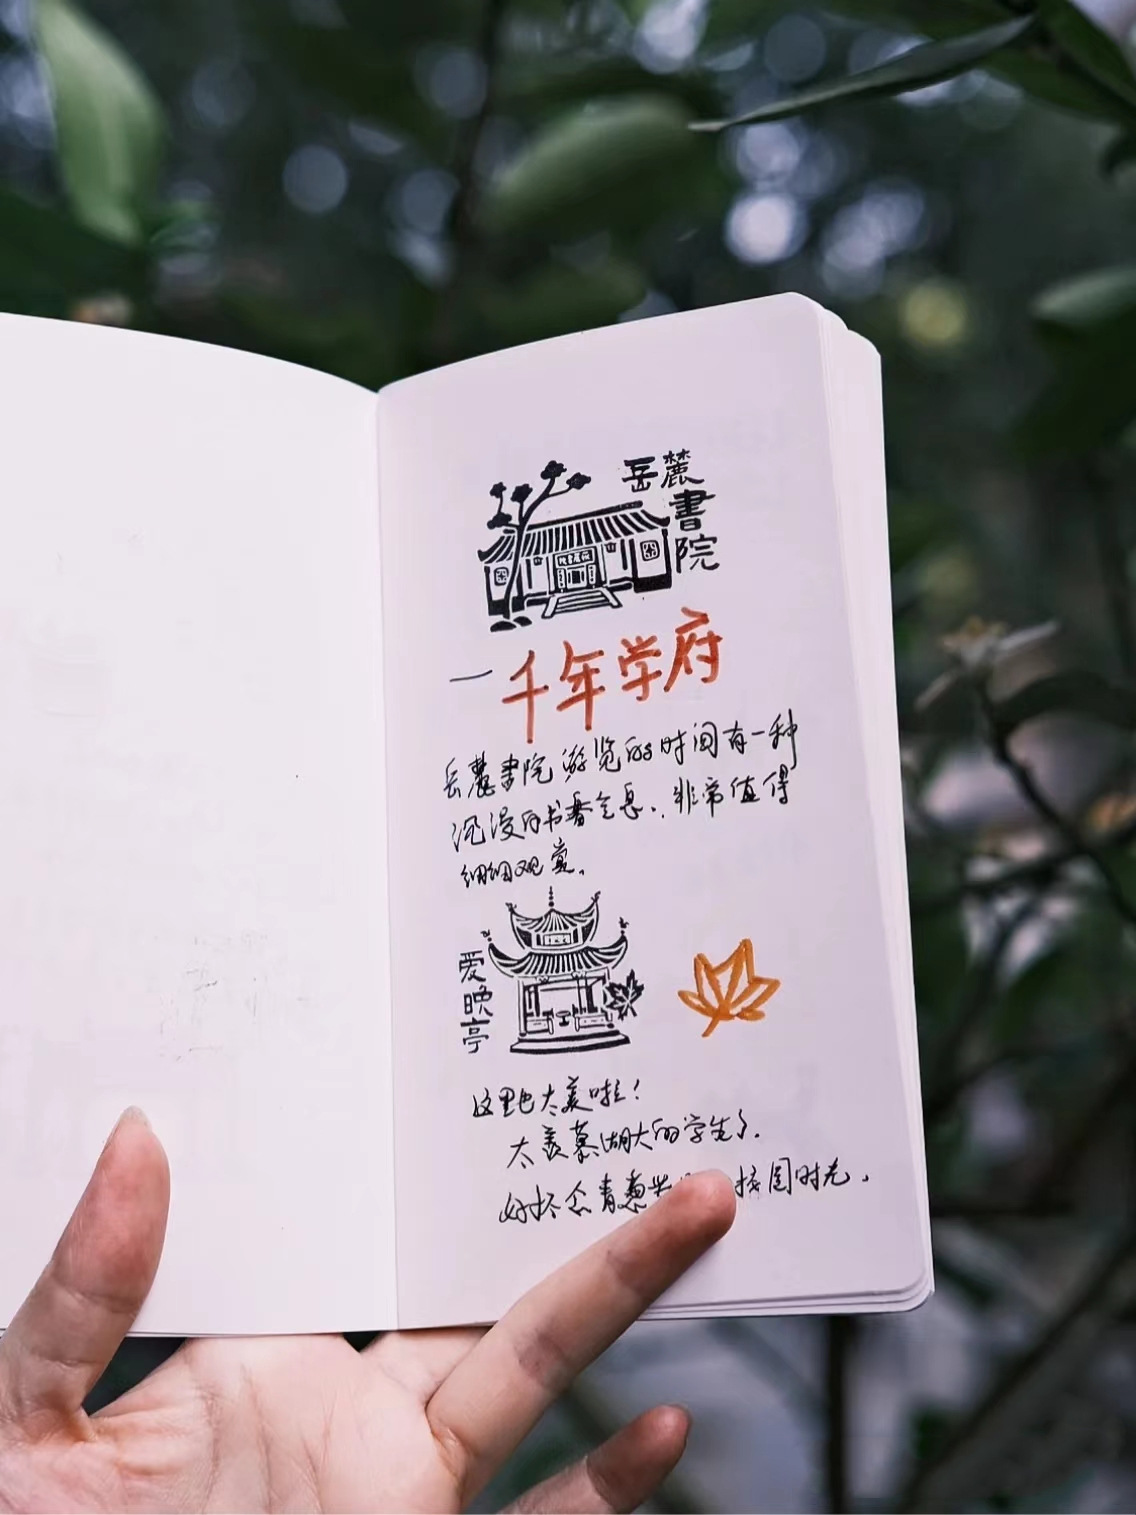 岳麓
書
院
一千年学府
岳麓書院游览的时间有一种
沉浸的书香气息，非常值得
细细观赏。
爱晚亭
这里也太美啦！
太羡慕湖大的学生了.
好怀念青葱 校园时光.